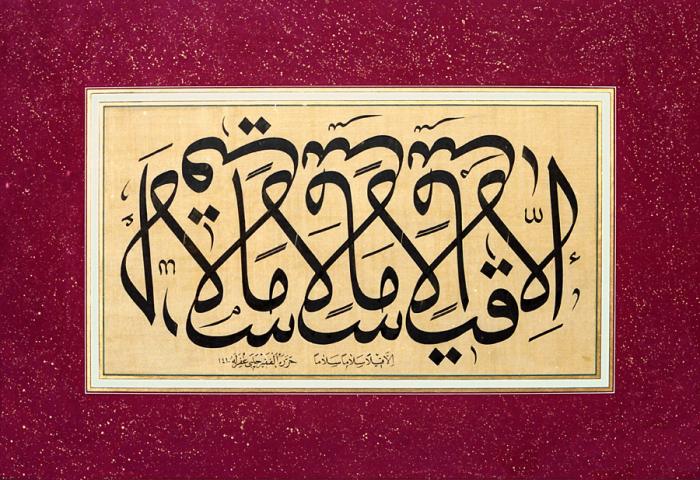 إلا قيلا سلاما سلاما
إلا قيلا سلاما سلاما حرره الفقير چلبي غفر له